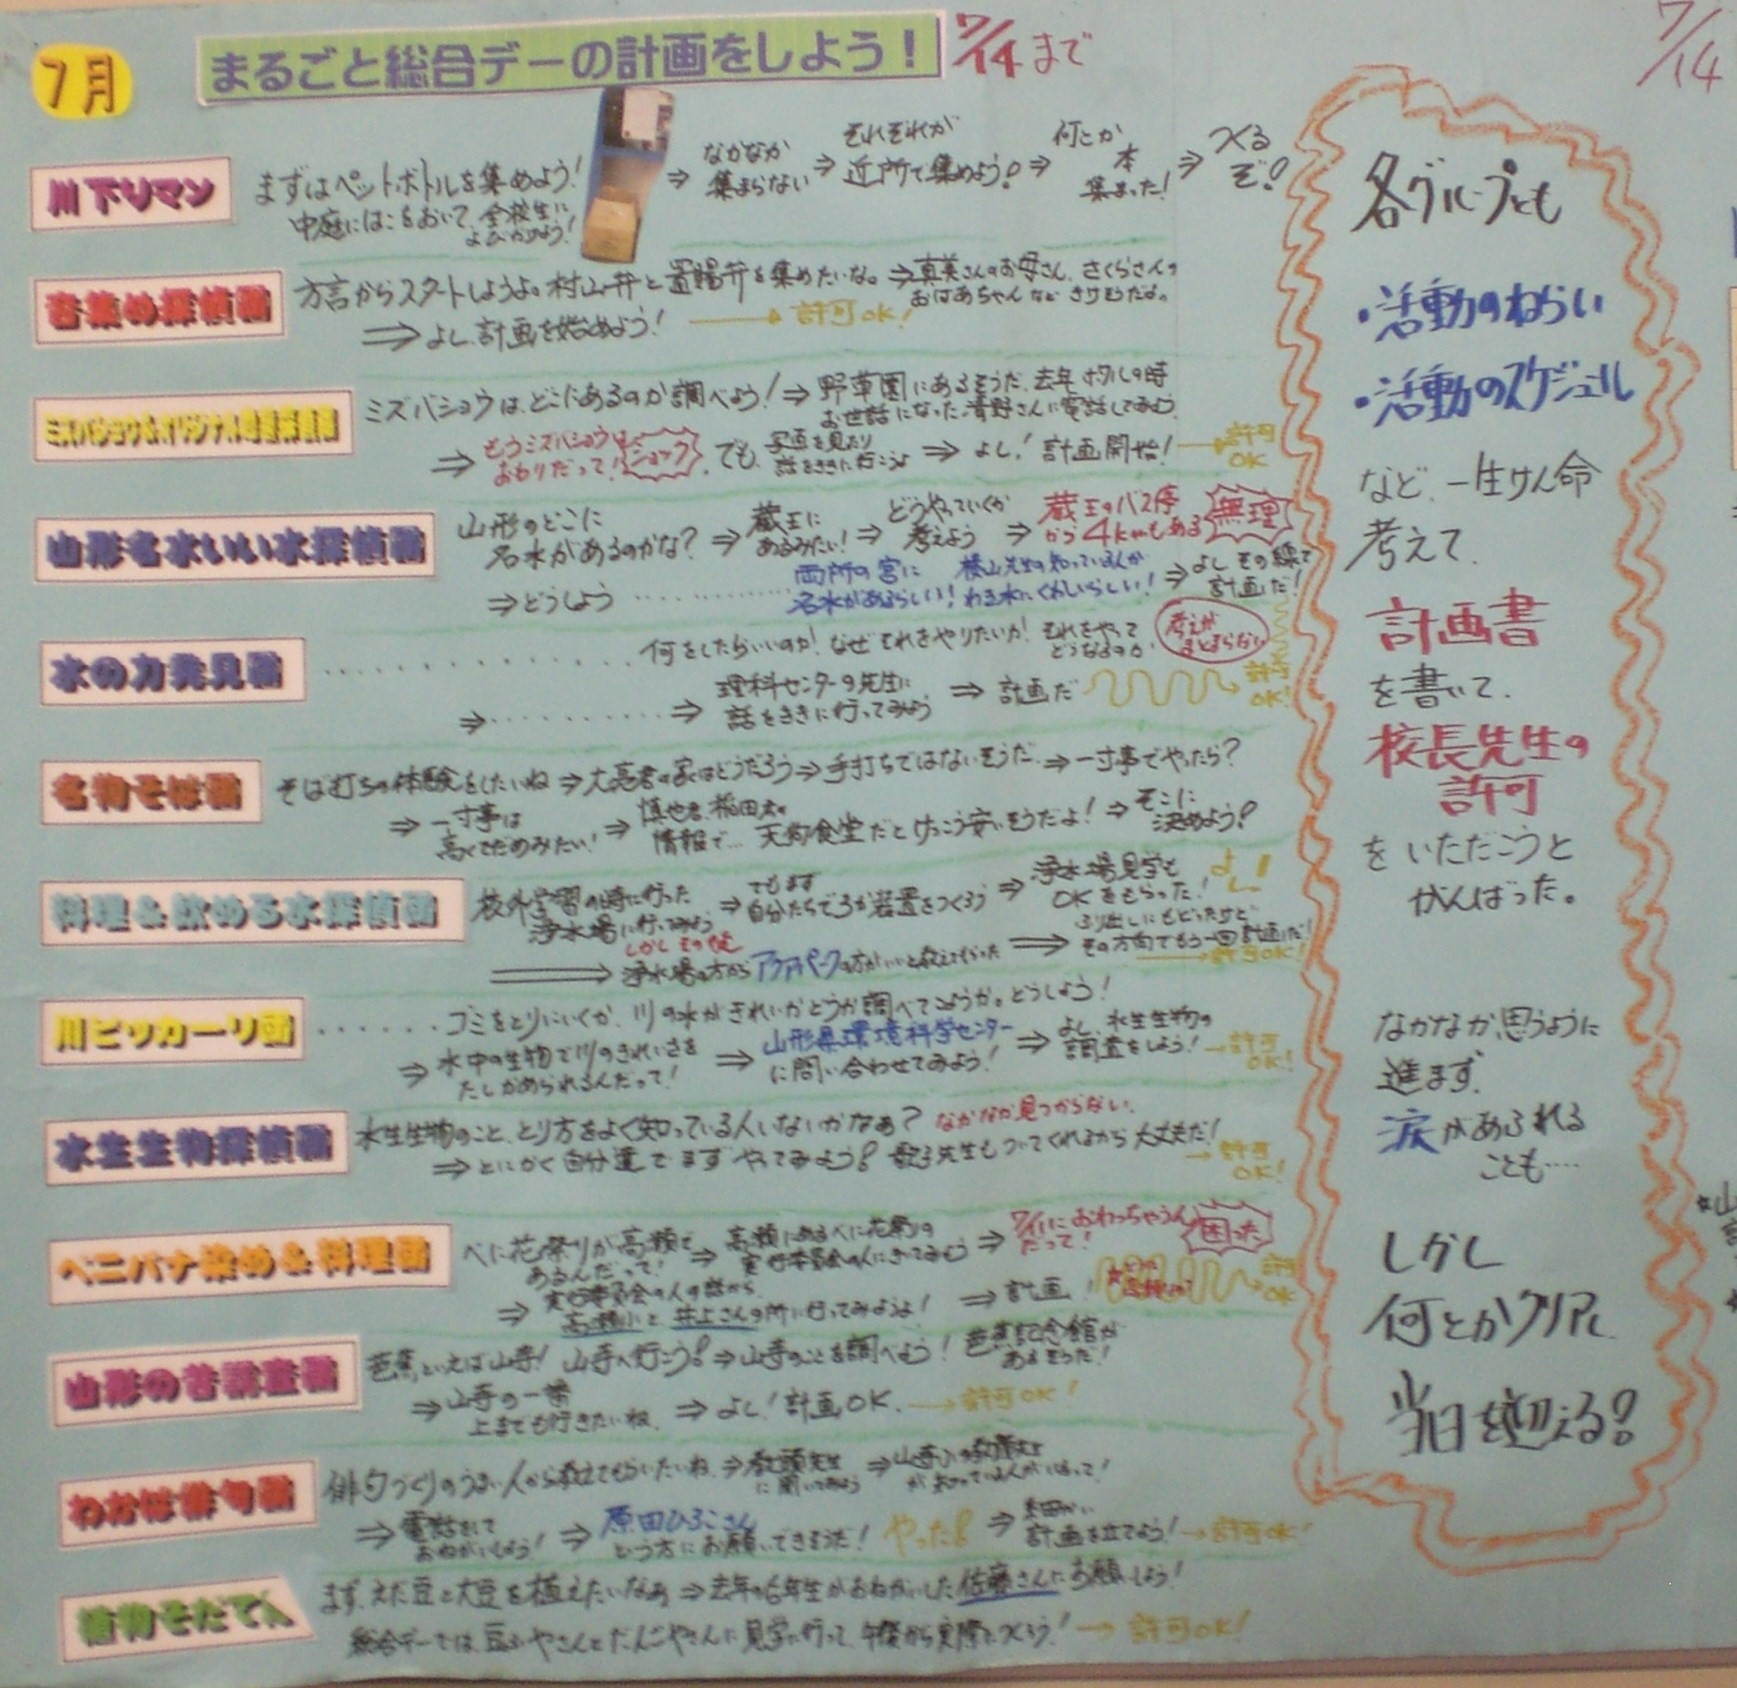 7月
まるごと総合デーの計画をしよう!
7/14まで
7/14
川下りマン
まずはペットボトルを集めよう!
中庭にはこをおいて、全校生に
よびかけよう!
⇒ なかなか
集まらない
⇒ それぞれが
近所で集めよう!
⇒ 何とか
本
集まった!
⇒ つくる
ぞ!
音集め探偵団
方言からスタートしようよ。村山弁と置賜弁を集めたいな。⇒真美さんのお母さん、さくらさんの
おばあちゃんなど きけそうだよ。
⇒よし、計画を始めよう!
→許可OK!
ミズバショウ&オリジナル
ミズバショウは、どこにあるのか調べよう!⇒野草園にあるそうだ、去年ホタルの時
お世話になった清野さんに電話してみよう
⇒ もうミズバショウは
おわりだって!
ショック
でも、写真を見たり
話をききに行こうよ
⇒ よし!計画開始!
→許可
OK
山形名水いい水探偵団
山形のどこに
名水があるのかな?
⇒ 蔵王に
あるみたい!
⇒ どうやっていくか
考えよう
⇒ 蔵王のバス停
から4kmもある
無理
⇒どうしよう
両所の宮に
名水があるらしい!
横山先生の知っている人が
わき水にくわしいらしい!
⇒ よしその線で
計画だ!
水の力発見団
何をしたらいいのか!なぜそれをやりたいか!それをやって
どうなるのか
考えが
まとまらない
⇒ 理科センターの先生に
話をききに行ってみよう
⇒ 計画だ
許可
OK!
名物そば団
そば打ちの体験をしたいね⇒大亮君の家はどうだろう⇒手打ちではないそうだ、⇒一寸亭でやったら?
⇒ 一寸亭は
高くてだめみたい!
⇒ 慎也君、稲田君の
情報で… 天狗食堂だとけっこう安いそうだよ!
⇒ そこに
決めよう!
料理&飲める水探偵団
校外学習の時に行った
浄水場に行ってみよう
⇒ でもまず
自分たちでろか装置をつくろう
⇒ 浄水場見学も
OKをもらった!
よし!
しかしその後
浄水場の方からアクアパークの方がいいと教えてもらった
⇒ ふり出しにもどったけど
その方向でもう一回計画だ!
→許可OK!
川ピッカーリ団
ゴミをとりにいくか、川の水がきれいかどうか調べてこようか。どうしよう!
⇒ 水中の生物で川のきれいさを
たしかめられるんだって!
⇒ 山形県環境科学センター
に問い合わせてみよう!
⇒ よし、水生生物の
調査をしよう!
→許可
OK!
水生生物探偵団
水生生物のこと、とり方をよく知っている人いないかなぁ? なかなか見つからない、
⇒とにかく自分達でまずやってみよう! 歌子先生もついてくれるから大丈夫だ!
→許可
OK!
ベニバナ染め&料理団
べに花祭りが高瀬で
あるんだって!
⇒ 高瀬にあるべに花祭りの
実行委員会の人にきいてみよう
⇒ 7/11におわっちゃうん
だって!
困った
⇒ 実行委員会の人の話から、
高瀬小と、井上さんの所に行ってみようよ!
⇒計画!
許可
OK
山形の昔調査団
芭蕉といえば山寺!山寺へ行こう!⇒山寺のことを調べよう!芭蕉記念館が
あるそうだ!
⇒ 山寺の一番
上までも行きたいね、
⇒ よし!計画OK、→許可OK!
わかば俳句団
俳句づくりのうまい人から教えてもらいたいね、⇒教頭先生
に聞いてみよう
⇒山寺小の教頭先生
が知っている人がいるって!
⇒ 電話をして
おねがいしよう!
⇒ 原田ひろこさん
という方にお願いできそうだ!
やった!
⇒ 細かい
計画を立てよう!
→許可OK!
植物そだてん
まず、えだ豆と大豆を植えたいなぁ⇒去年の6年生がおねがいした佐藤さんにお願いしよう!
総合デーでは、豆ふやさんとだんごやさんに見学に行って、午後から実際につくろう!→許可OK!
各グループとも
・活動のねらい
・活動のスケジュール
など、一生けん命
考えて、
計画書
を書いて、
校長先生の
許可
をいただこうと
がんばった。
なかなか思うように
進まず、
涙があふれる
ことも‥‥
しかし
何とかクリアし
当日を迎える!